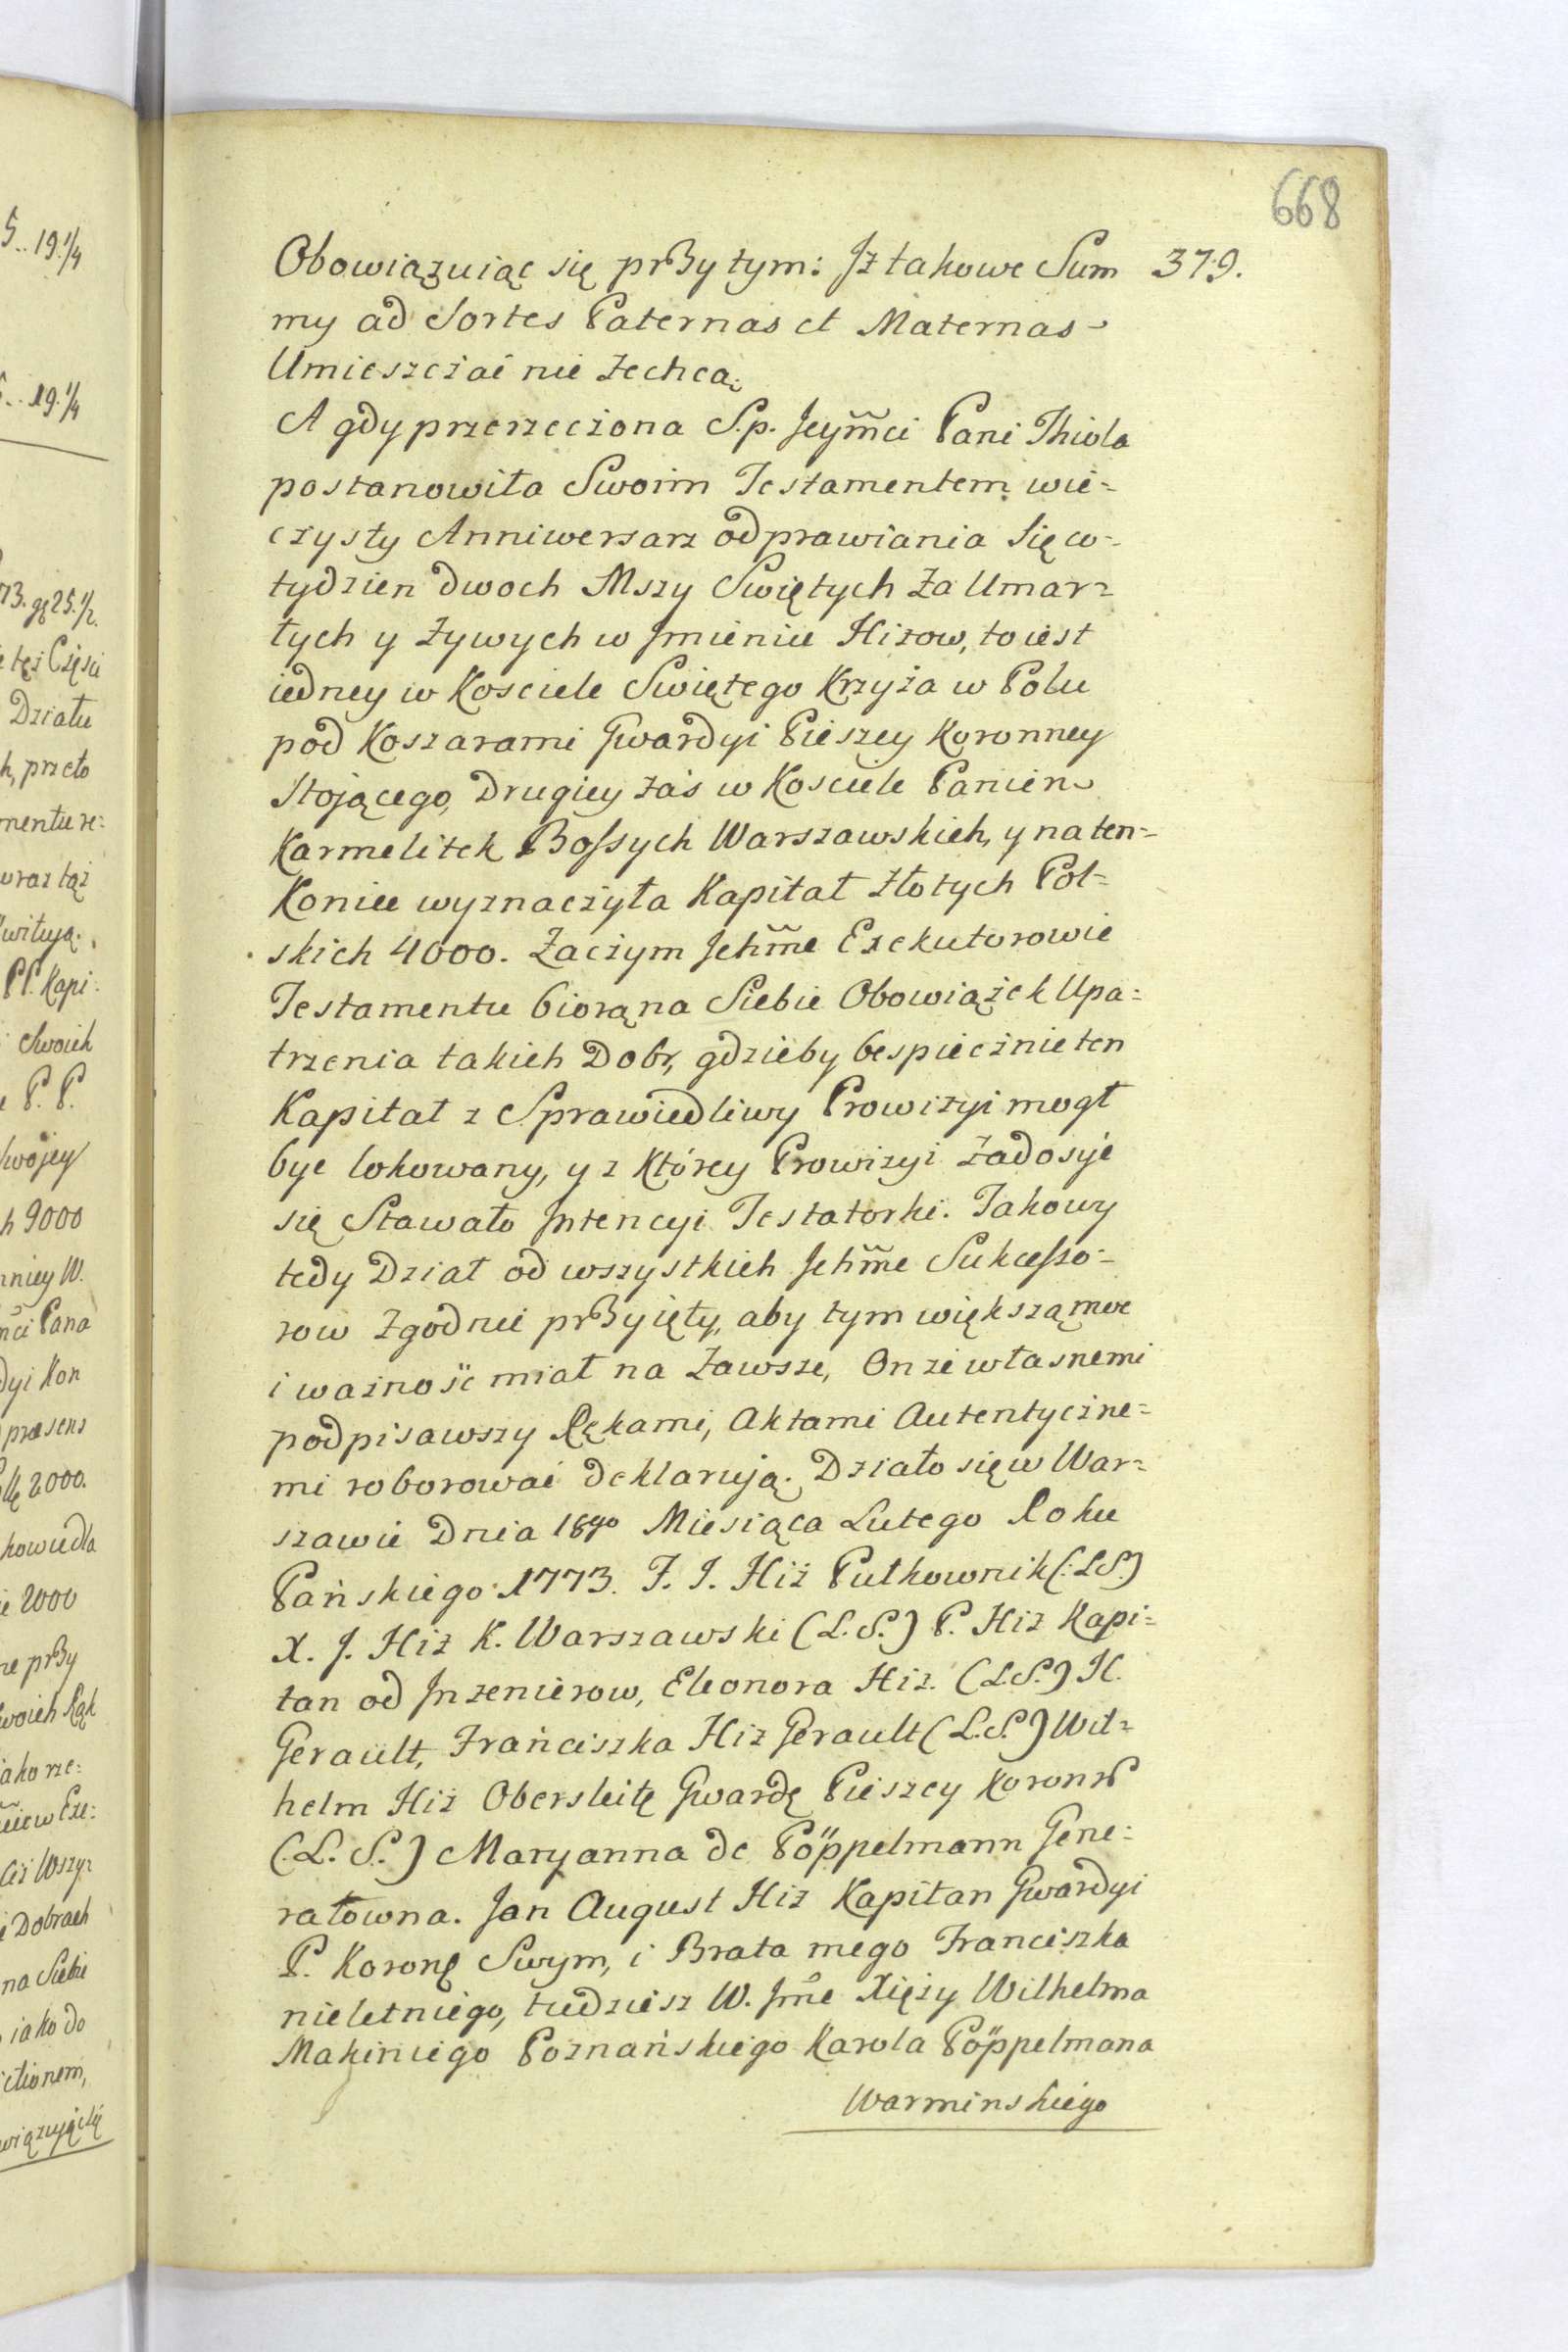 668
Obowiązuiąc się przytym: Jż takowe Sum 379.
my ad Sortes Paternas et Maternas
Umieszczać nie zechcą.
A gdy przerzeczona S.p. Jeymci Pani Thiola
postanowiła Swoim Testamentem wie=
czysty Anniwersarz odprawiania się co-
tydzien dwoch Mszy Swiętych za Umar=
łych y żywych w Jmieniu Hizow, to iest
iedney w Kosciele Swiętego Krzyża w Polu
pod Koszarami Gwardyi Pieszey Koronney
Stojącego, Drugiey zaś w Kosciele Panien
Karmelitek Bossych Warszawskich, y na ten=
Koniec wyznaczyła Kapitał złotych Pol=
skich 4000. Zaczym Jchmc Exekutorowie
Testamentu biorą na Siebie Obowiązek Upa=
trzenia takich Dobr, gdzieby bespiecznie ten
Kapitał z Sprawiedliwy Prowizyi mogł
byc lokowany, y z którey Prowizyi zadosyć
się Stawało Jntencyi Testatorki. Takowy
tedy Dział od wszystkich Jchmc Sukcesso=
row zgodnie przyięty, aby tym większą moc
i ważność miał na zawsze, Onże własnemi
podpisawszy Rękami, Aktami Autentyczne=
mi roborować deklarują. Działo się w War=
szawie Dnia 18go Miesiąca Lutego Roku
Pańskiego 1773. F. J. Hiż Pułkownik (:LS.)
X. J. Hiż K. Warszawski (L.S.) P. Hiż Kapi=
tan od Jnzenierow, Eleonora Hiż. (L.S.) H.
Gerault, Franciszka Hiż Gerault (L.S.) Wil=
helm Hiż Obersleitę Gwardę Pieszey Koronn
(L.S.) Maryanna de Pöppelmann Gene=
rałowna. Jan August Hiż Kapitan Gwardyi
P. Koronę Swym, i Brata mego Franciszka
nieletniego, tudziesz W. Jmc Xięży Wilhelma
Makiniego Poznańskiego Karola Pöppelmana
Warminskiego
5.. 19.1/4
19.1/4
73. gł 25.1/2.
też Częsci
Działu
h, przeto
mentu re:
wraz tąż
witują.
PP. Kapi:
Swoich
P. P.
Swojey
h 9000
nniey W.
mci Pana
dyi Kon
præsens
2000.
kowe dla
ie 2000
ne przy
Swoich Rąk
iako rze:
niew Exe:
ciż Wszy=
i Dobrach
na Siebie
iako do
ictionem,
wiązując się